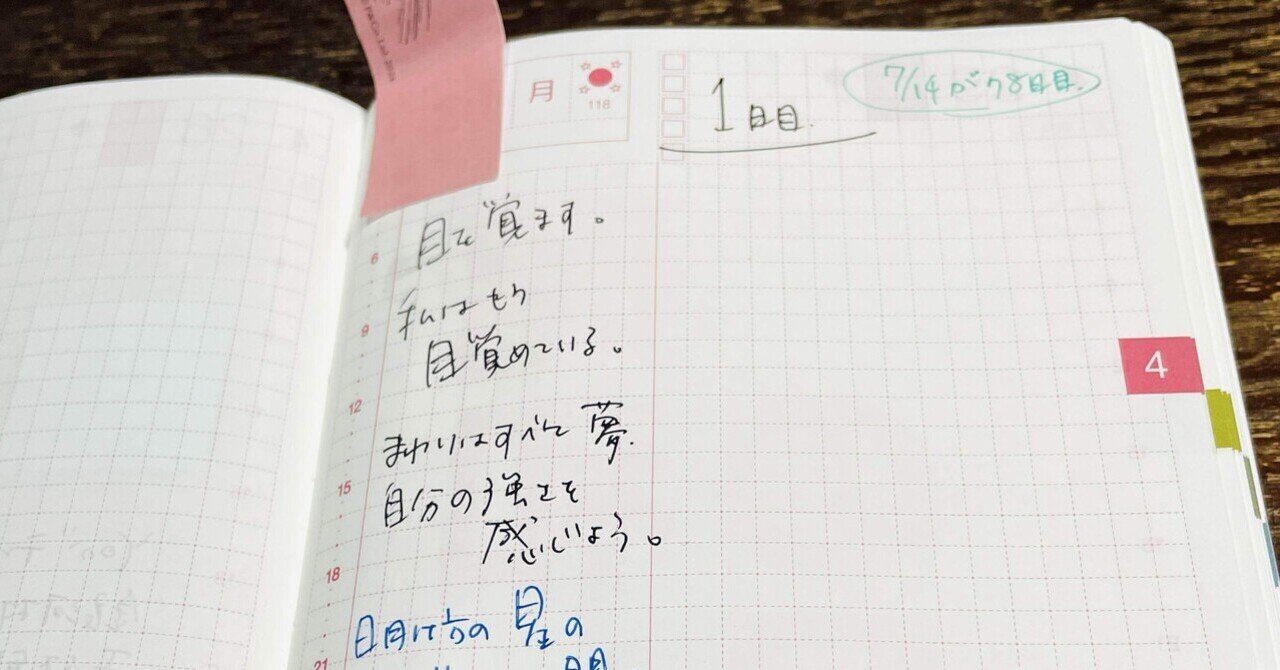 月
118
1日目.
7/14が78日目.
6
目を覚ます。
私はもう
9
目覚めている。
12
まわりはすべて夢.
15
自分の強さを
感じよう。
18
の
21
4